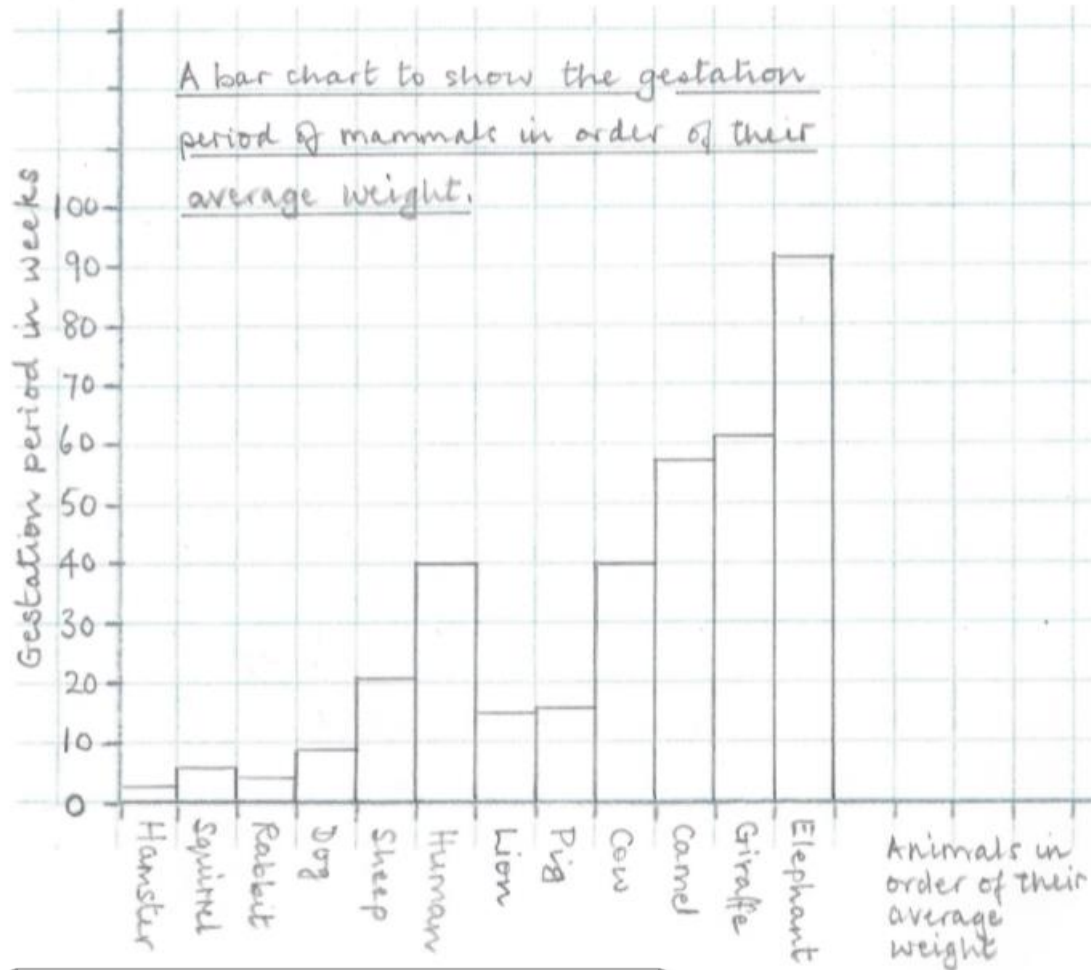 A bar chart to show the gestation
period of mammals in order of their
average weight.
Gestation period in weeks
100
90
80
70
60
50
40
30
20
10
0
Hamster
Squirrel
Rabbit
Dog
Sheep
Human
Lion
Pig
Cow
Camel
Giraffe
Elephant
Animals in
order of their
average
weight